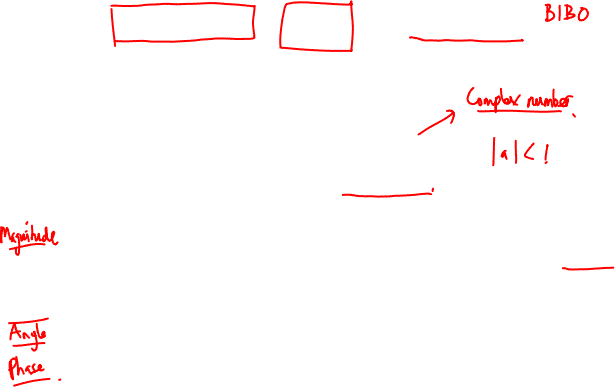 BIBO
Complex number.
|a| < 1
Magnitude
Angle
Phase.